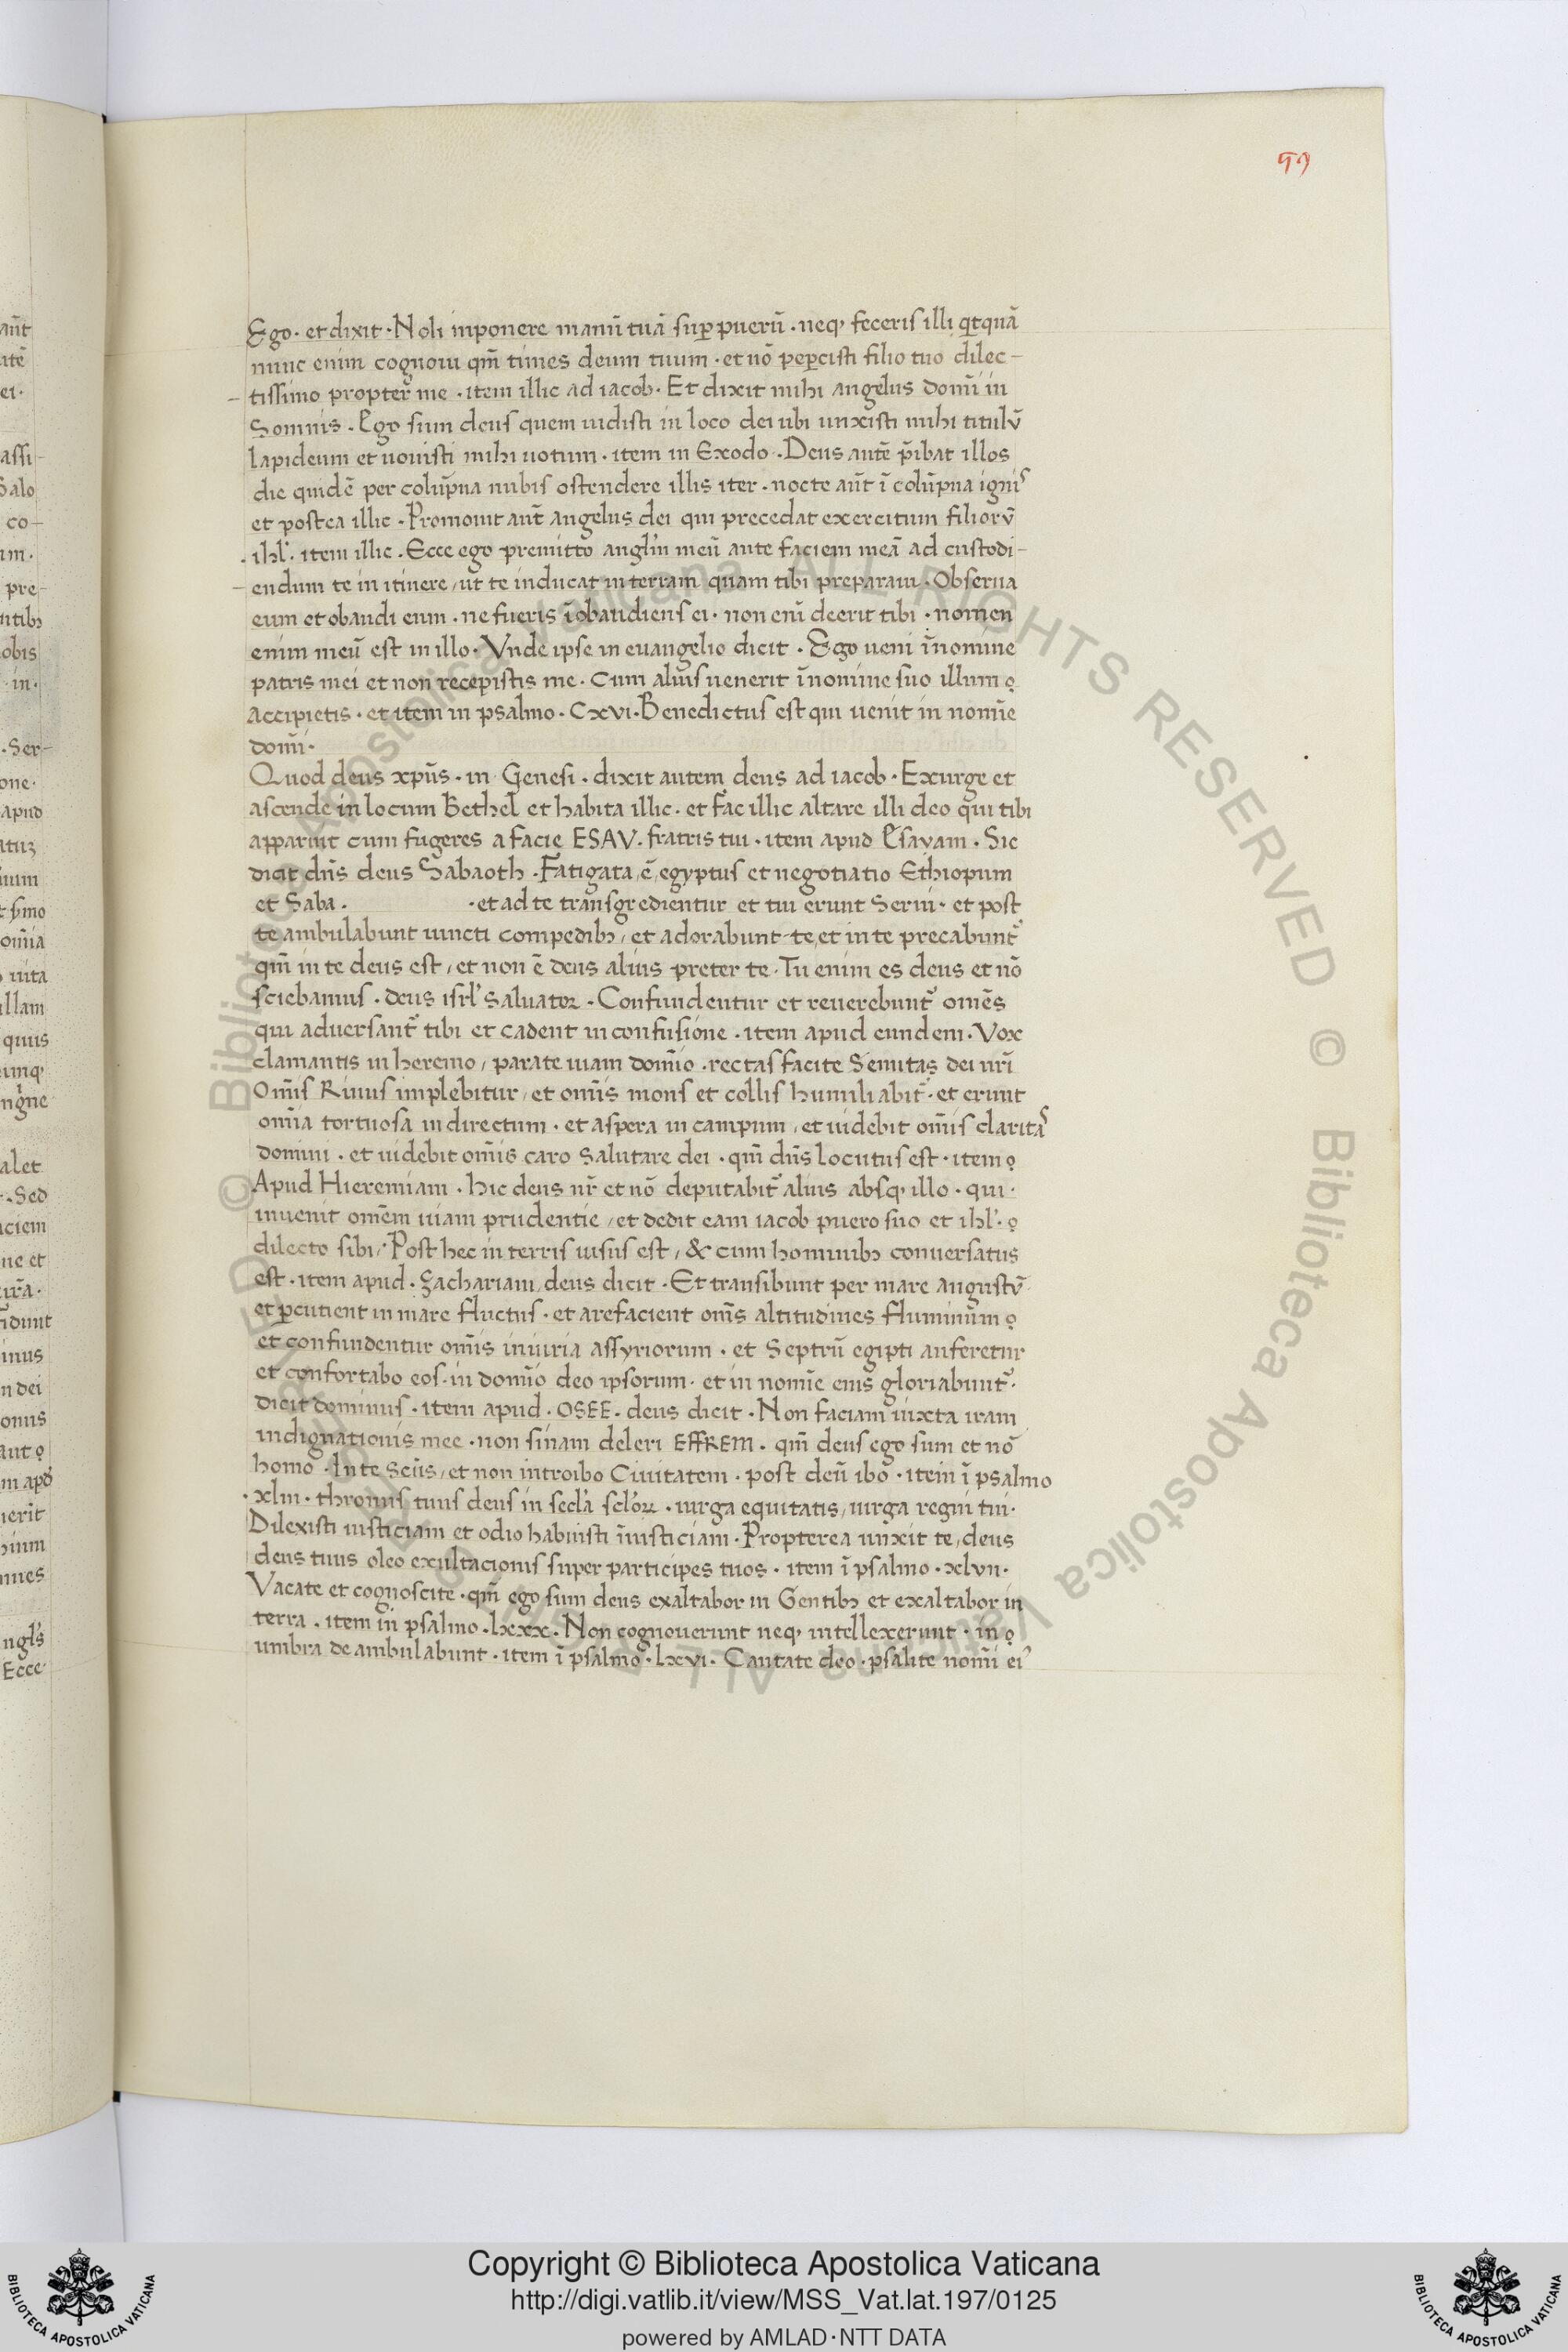 99
Ego · et dixit · Noli inponere manū tuā sup puerū · neq; feceris illi qͥtquā
nunc enim cognoui qm̄ times deum tuum · et nō pepcisti filio tuo dilec-
-tissimo propter me · item illic ad iacob · Et dixit mihi angelus domī in
Somnis · Ego sum deus quem uidisti in loco dei ubi unxisti mihi titulū
lapideum et uouisti mihi uotum · item in Exodo · Deus autē p̄ibat illos
die quidē per colūpna nubis ostendere illis iter · nocte aūt ī colūpna ignis
et postea illic · Promouit aūt angelus dei qui precedat exercitum filiorū
· ihl' · item illic · Ecce ego premitto angl'm meū ante faciem meā ad custodi-
-endum te in itinere, ut te inducat in terram quam tibi preparaui · Obserua
eum et obaudi eum · ne fueris īobaudiens ei · non enī deerit tibi · nomen
enim meū est in illo · Vnde ipse in euangelio dicit · Ego ueni īnomine
patris mei et non recepistis me · Cum alius uenerit īnomine suo illum
Accipietis · et item in psalmo · Cxvi · Benedictus est qui uenit in nomīe
domī ·
Quod deus xpūs · in Genesi · dixit autem deus ad iacob · Exurge et
ascende in locum Bethel et habita illic · et fac illic altare illi deo qui tibi
apparuit cum fugeres a facie ESAV · fratris tui · item apud Esayam · Sic
dicit dn̄s deus Sabaoth · Fatigata ē egyptus et negotiatio Ethiopum
et Saba · · et ad te transgredientur et tui erunt Serui · et post
te ambulabunt uincti compedibꝫ, et adorabunt te, et in te precabunt᷑
qm̄ in te deus est, et non ē deus alius preter te · Tu enim es deus et nō
sciebamus · deus isrl' Saluatoꝛ · Confundentur et reuerebunt᷑ omēs
qui aduersant᷑ tibi et cadent in confusione · item apud eundem · Vox
clamantis in heremo, parate uiam domīo · rectas facite Semitas dei nrī
Omīs Riuus implebitur, et omīs mons et collis humiliabit᷑ · et erunt
omīa tortuosa in directum · et aspera in campum, et uidebit omīs claritas
domini · et uidebit omīs caro Salutare dei · qm̄ dn̄s locutus est · item
Apud Hieremiam · hic deus nr̄ et nō deputabit᷑ alius absq; illo · qui ·
inuenit omēm uiam prudentie, et dedit eam iacob puero suo et ihl' ·
dilecto sibi, Post hec in terris uisus est, & cum hominibꝫ conuersatus
est · item apud · Zachariam, deus dicit · Et transibunt per mare angustū
et pcutient in mare fluctus · et arefacient omēs altitudines fluminum
et confundentur omīs iniuria assyriorum · et Septrū egipti auferetur
et confortabo eos · in domīo deo ipsorum · et in nomīe eius gloriabunt᷑ ·
dicit dominus · item apud · OSEE · deus dicit · Non faciam iuxta iram
indignationis mee · non sinam deleri EFFREM · qm̄ deus ego sum et nō
homo · In te Scūs, et non introibo Ciuitatem · post deū ibo · item ī psalmo
· xliii · thronus tuus deus in secl'a scl'oꝝ · uirga equitatis, uirga regni tui ·
Dilexisti iusticiam et odio habuisti īiusticiam · Propterea unxit te, deus
deus tuus oleo exultacionis super participes tuos · item ī psalmo · xlvii ·
Vacate et cognoscite · qm̄ ego sum deus exaltabor in Gentibꝫ et exaltabor in
terra · item in psalmo · lxxx · Non cognouerunt neq; intellexerunt · in
umbra deambulabunt · item ī psalmo · lxvi · Cantate deo · psalite nomī ei'
Copyright © Biblioteca Apostolica Vaticana
http://digi.vatlib.it/view/MSS_Vat.lat.197/0125
powered by AMLAD·NTT DATA
BIBLIOTECA APOSTOLICA VATICANA
BIBLIOTECA APOSTOLICA VATICANA